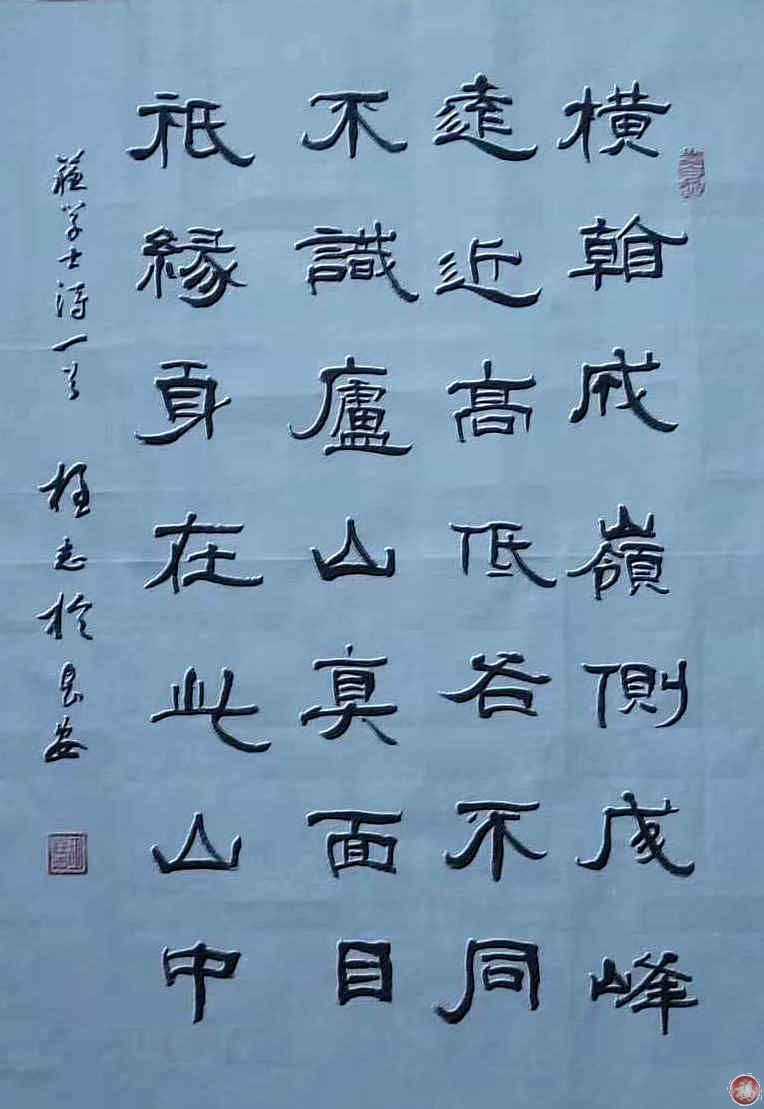 橫看成嶺側成峰
遠近高低各不同
不識廬山真面目
祇緣身在此山中
蘇學士詩一首 志於長安
福